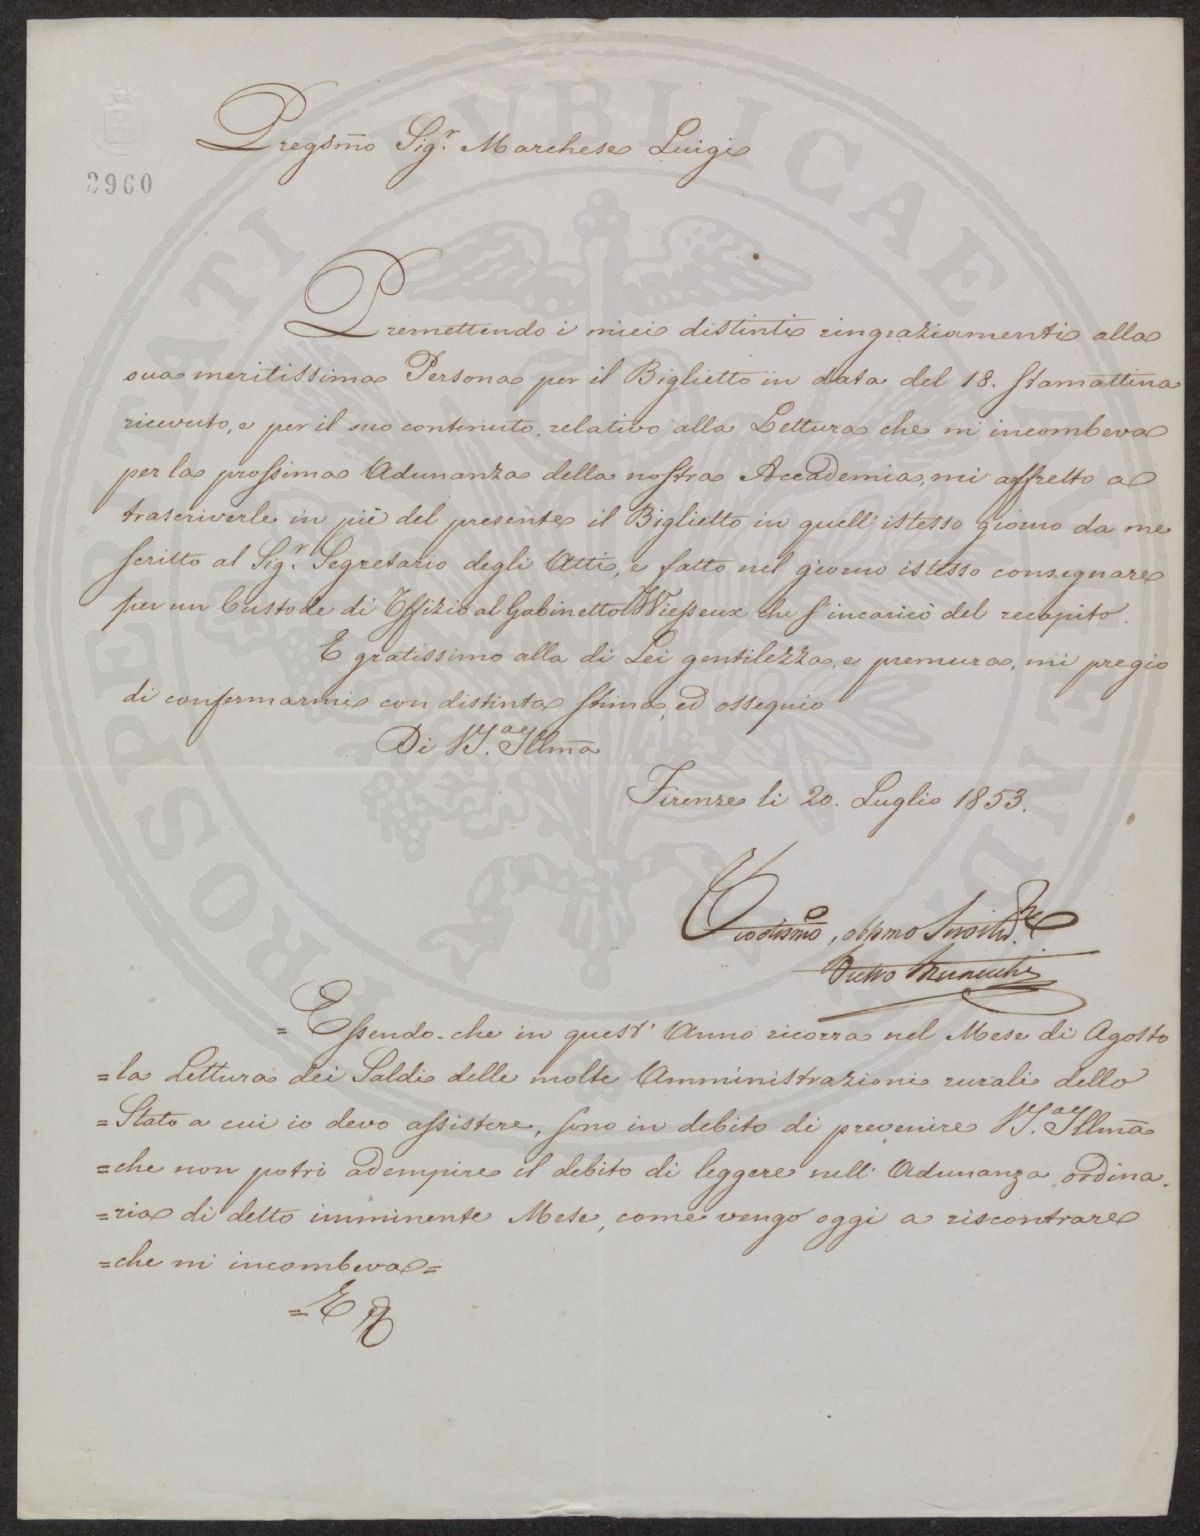 Pregsm̄o Sig.r Marchese Luigi
2960
Premettendo i miei distinti ringraziamenti alla
sua meritissima Persona per il Biglietto in data del 18. stamattina
ricevuto, e per il suo contenuto relativo alla Lettura che m' incombeva
per la prossima Adunanza della nostra Accademia, mi affretto a
trascriverle in piè del presente il Biglietto in quell' istesso giorno da me
scritto al Sig.r Segretario degli Atti, e fatto nel giorno istesso consegnare
per un Custode di Offizio al Gabinetto Wiesseux che s' incaricò del recapito.
E gratissimo alla di Lei gentilezza, e premura, mi pregio
di confermarmi con distinta stima, ed ossequio
Di VS.a Illm̄a
Firenze li 20. Luglio 1853.
= Essendo-che in quest' Anno ricorra nel Mese di Agosto
= la Lettura dei Saldi delle molte Amministrazioni rurali dello
= Stato a cui io devo assistere, sono in debito di prevenire VS.a Illm̄a
= che non potrò adempire il debito di leggere nell' Adunanza ordina-
= ria di detto imminente Mese, come vengo oggi a riscontrare
= che m' incombeva =
PROSPERITATI PVBLICAE AVGENDAE